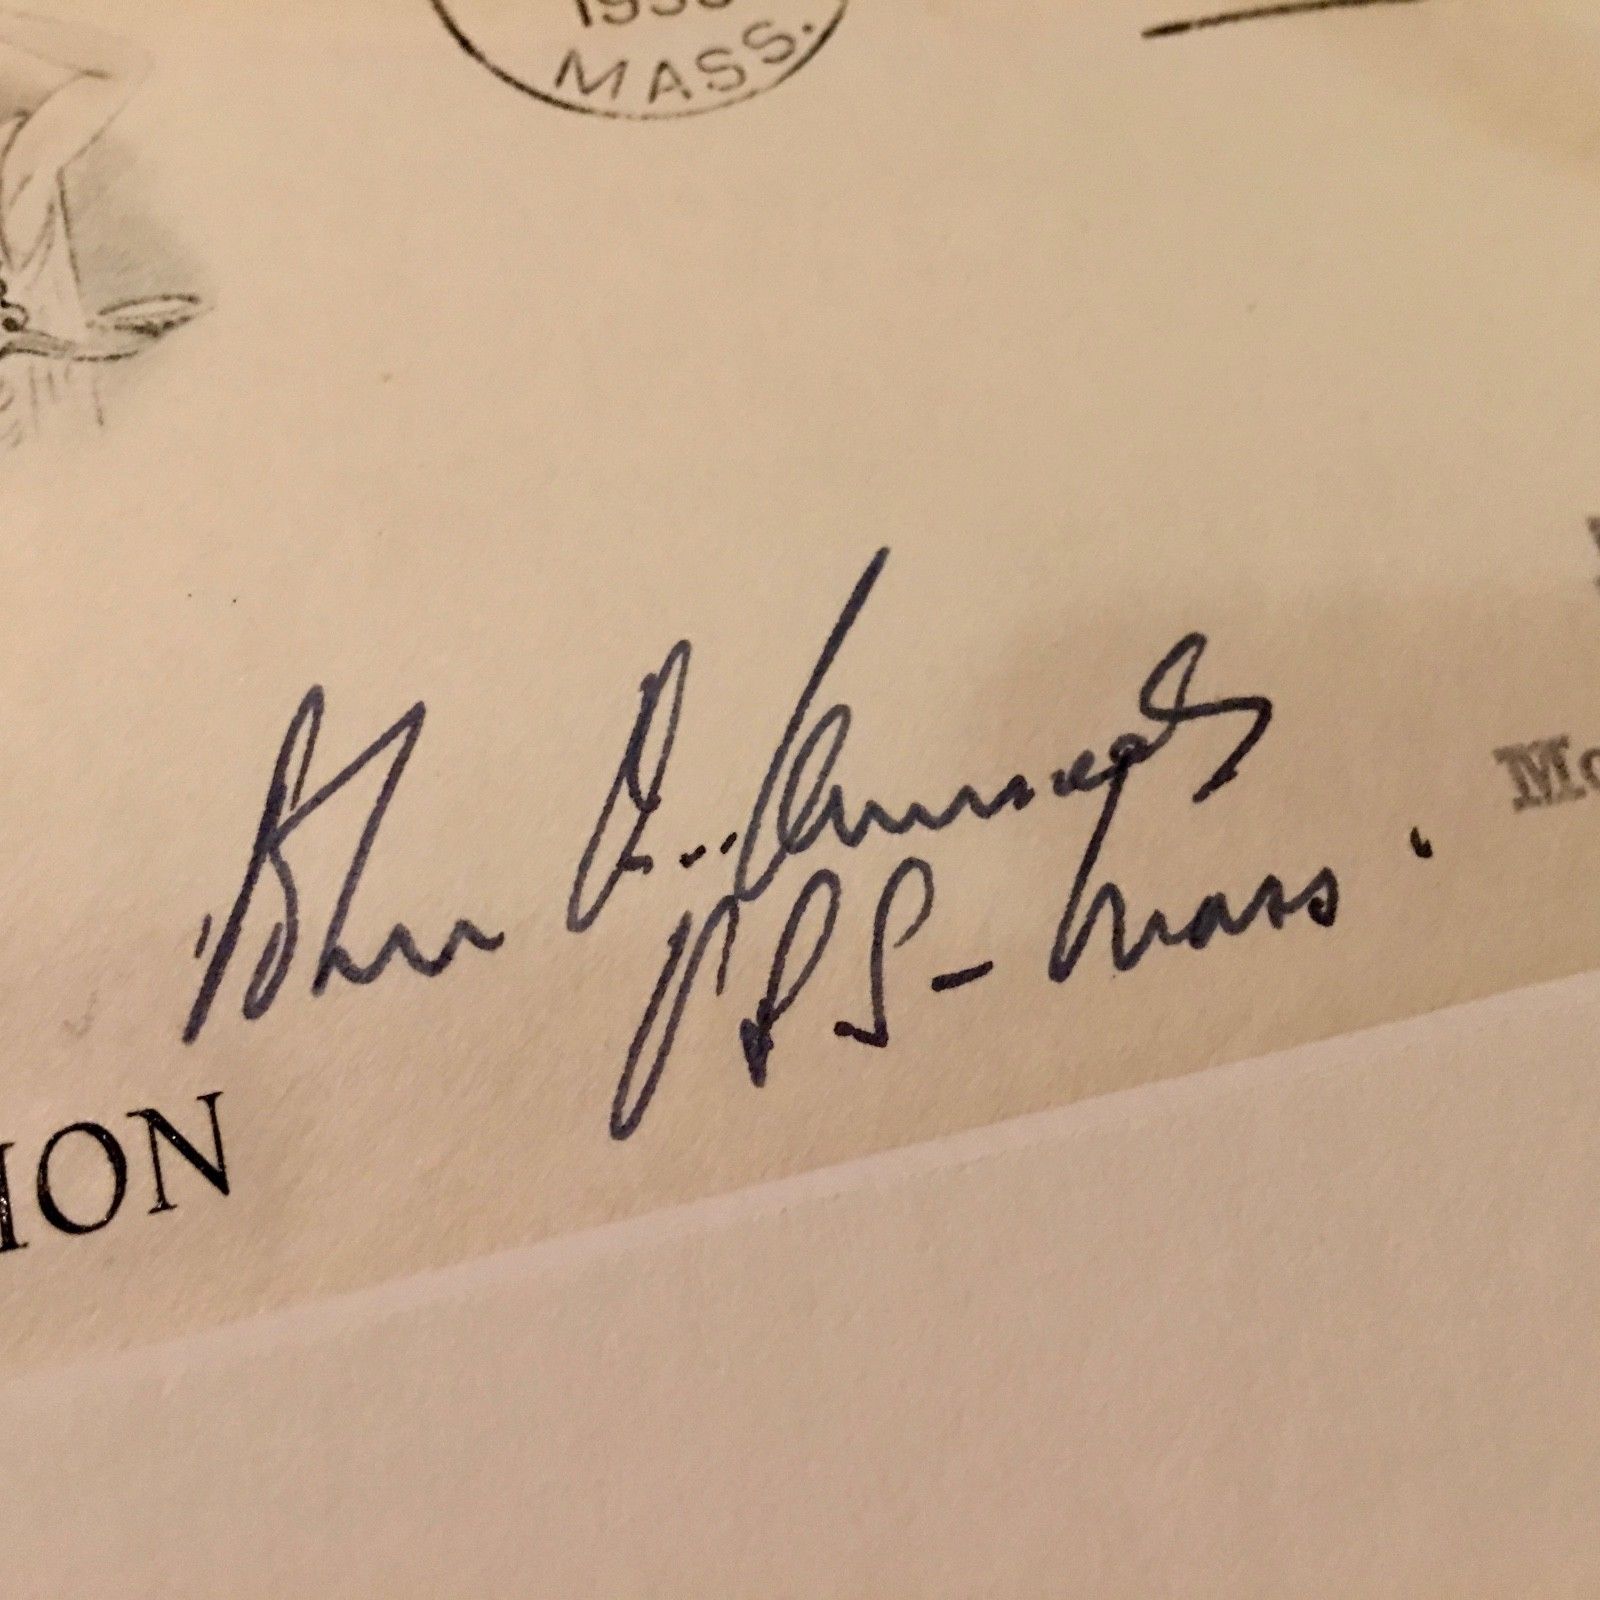 MASS.
John F. Kennedy
USS - Mass.
Mo
ION